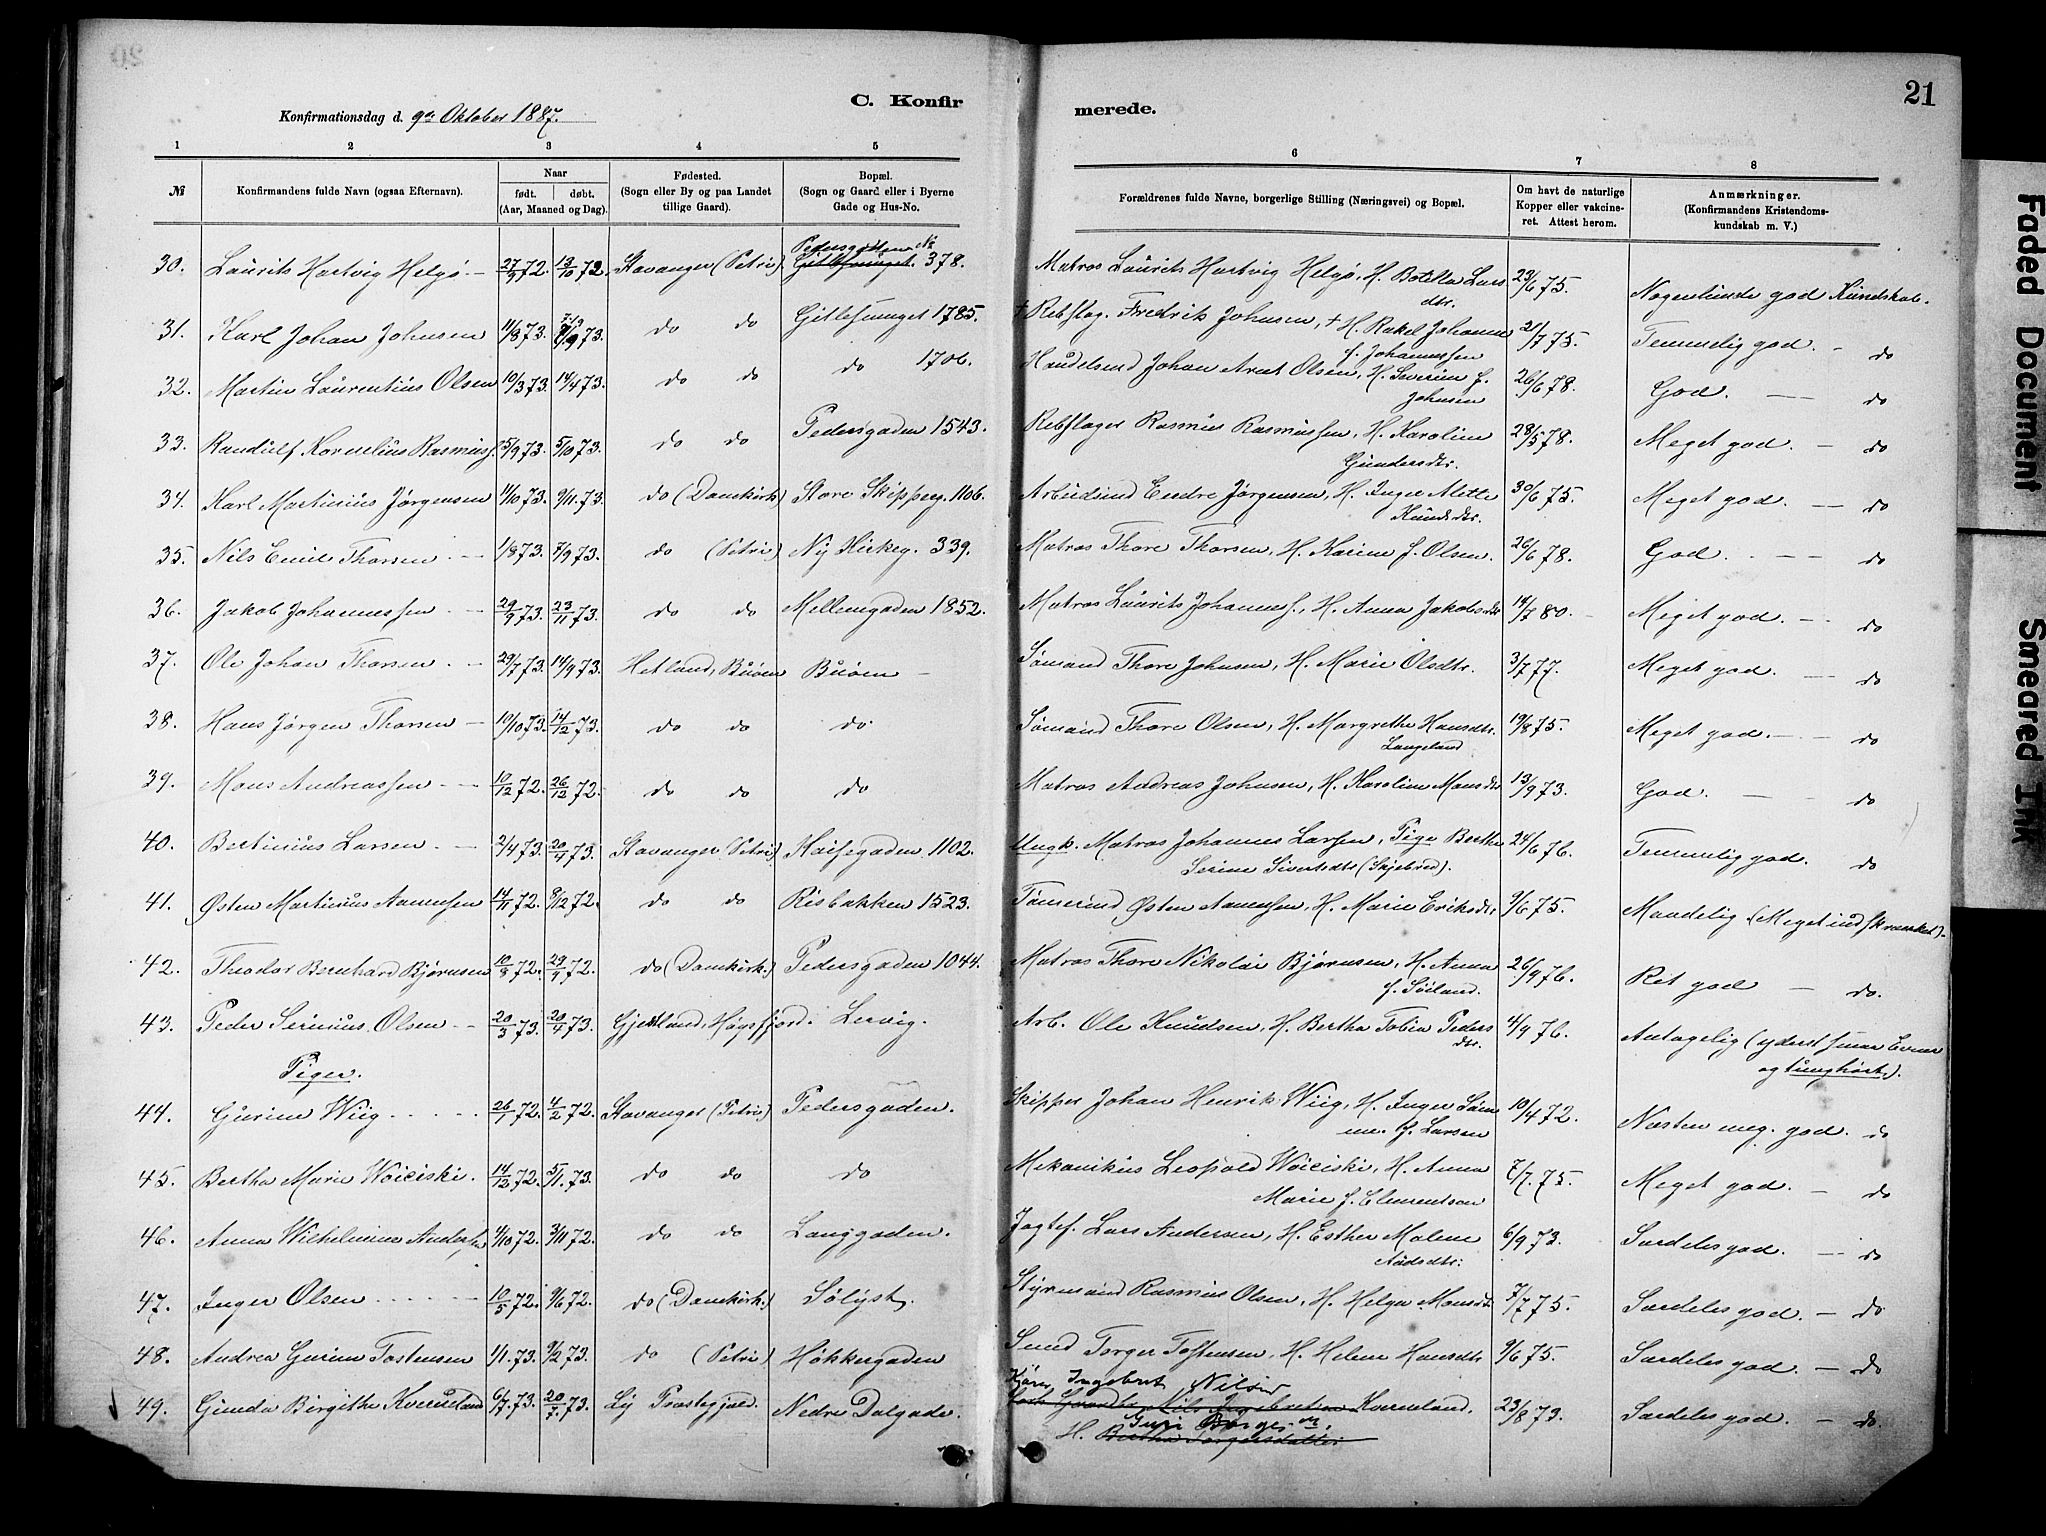 21
C. Konfir
merede.
Konfirmationsdag d. 9de Oktober 1887.
1 2 3 4 5 6 7 8
№ Konfirmandens fulde Navn (ogsaa Efternavn). Naar født. døbt. (Aar, Maaned og Dag). Fødested. (Sogn eller By og paa Landet tillige Gaard). Bopæl. (Sogn og Gaard eller i Byerne Gade og Hus-No. Forældrenes fulde Navne, borgerlige Stilling (Næringsvei) og Bopæl. Om havt de naturlige Kopper eller vakcineret. Attest herom. Anmærkninger. (Konfirmandens Kristendomskundskab m. V.)
30. Laurits Hartvig Helgø 27/9 72. 13/10 72. Stavanger (Petri) Pedersgaden № 378. Matros Laurits Hartvig Helgø, H. Botilla Lars
dtr. 23/6 75. Nogenlunde god Kundskab.
31. Karl Johan Johnsen 11/8 73. 7/9 73. do do Gitlesmuget 1785. + Rebslag. Fredrik Johnsen, + H. Rakel Johanne
f. Johannessen 21/7 75. Temmelig god. - do
32. Martin Laurentius Olsen 10/3 73. 14/4 73. do do do 1706. Handelsmd Johan Arnt Olsen, H. Severine f.
Johnsen 26/6 78. God. - do
33. Randulf Kornelius Rasmuss. 5/9 73. 5/10 73. do do Pedersgaden 1543. Rebslager Rasmus Rasmussen, H. Karoline
Gundersdtr. 28/5 78. Meget god. - do
34. Karl Martinius Jørgensen 11/10 73. 9/11 73. do (Domkirk.) Store Skipperg. 1106. Arbeidsmd Endre Jørgensen, H. Inger Alette
Knudsdtr. 30/6 75. Meget god. - do
35. Nils Emil Thorsen - 1/8 73. 7/9 73. do (Petri) Ny Kirkeg. 339. Matros Thore Thorsen, H. Karine f. Olsen. 26/6 78. God. - do
36. Jakob Johannessen - 29/9 73. 23/11 73. do do Mellemgaden 1852. Matros Laurits Johanness., H. Anna Jakobsdtr 14/7 80. Meget god. - do
37. Ole Johan Thorsen - 29/7 73. 14/9 73. Hetland, Buøen Buøen - Sømand Thore Johnsen, H. Marie Olsdtr. 3/7 77. Meget god. - do
38. Hans Jørgen Thorsen - 10/10 73. 14/12 73. do do do Sømand Thore Olsen, H. Margrethe Hansdtr.
Langeland 19/8 75. Meget god. - do
39. Mons Andreassen - 10/12 72. 26/12 72. do do do Matros Andreas Johnsen, H. Karoline Monsdtr 13/9 73. God. - do
40. Bertinius Larsen - 2/4 73. 20/4 73. Stavanger (Petri) 1102. Ungk. Matros Johannes Larsen, Pige Berthe
Serine Sivertsdtr (Skjebred). 24/6 76. Temmelig god. do
41. Østen Martinius Aanensen 14/11 72. 8/12 72. do do Risbakken 1523. Tømermd Østen Aanensen, H. Marie Eriksdtr 9/6 75. Maadelig (Meget indskrænket).
42. Theodor Bernhard Bjørnsen 10/8 72. 29/9 72. do (Domkirk.) Pedersgaden 1044. Matros Thore Nikolai Bjørnsen, H. Anna
f. Soiland. 26/9 76. Ret god - do.
43. Peder Serinius Olsen - 20/3 73. 20/4 73. Høgsfjord. Lervig. Arb. Ole Knudsen, H. Bertha Tobia Peders
dtr. 4/9 76. Antagelig (yderst smaa Evner
og tunghørt).
Piger.
44. Gurine Wiig 26/1 72. 4/2 72. Stavanger (Petri) Pedersgaden. Skipper Johan Henrik Wiig, H. Inger
f. Larsen 10/4 72. Næsten meg. god. do
45. Bertha Marie Woiciski. 14/12 72. 5/1 73. do do do Mekanikus Leopold Woiciski, H. Anna
Marie f. Clementsen 7/7 75. Meget god. - do
46. Anna Wilhelmine Andersen 4/10 72. 3/11 72. do do Langgaden. Jagtef. Lars Andersen, H. Esther Malene
Aadsdtr: 6/9 73. Særdeles god. - do
47. Inger Olsen 10/5 72. 9/6 72. do (Domkirk.) Sølyst. Styrmand Rasmus Olsen, H. Helga Monsdtr. 7/7 75. Særdeles god. - do
48. Andrea Gurine Tostensen 1/1 73. 9/2 73. do (Petri) Høkkergaden Smed Torger Tostensen, H. Helene Hansdtr 9/6 75. Særdeles god. - do
49. Gunda Birgithe Kverneland 6/7 73. 20/7 73. Ly Præstegjæld. Nedre Dalgade. Ingebret Nilsen
Kverneland, 23/8 73. Særdeles god. - do.
H. Bertha Torgersdatter
Faded Document
Smeared Ink